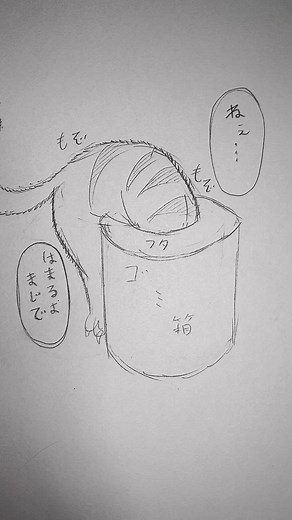 ねえ…
もぞ
もぞ
フタ
ゴミ箱
はまるよ
まじで